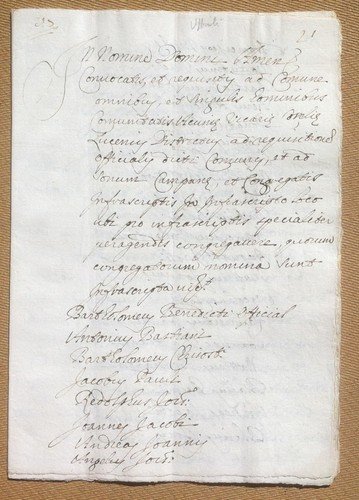 21
In Nomine Domini Amen
Convocatis, et requisitis ad Comune
omnibus et singulis hominibus
Comunitatis Vicarie
Lucensis Districtus ad requisitione
officialis dicti Comunis, et ad
sonum Campane, et Congregatis
Infrascriptis in Infrascripto loco
ubi pro infrascriptis specialiter
peragendis congregavere, quorum
congregatorum nomina sunt
Infrascripta
Bartholomeus Benedicti official
Antonius Bastiani
Bartholomeus
Jacobus Pauli
Redolphus
Joannes Jacobi
Andreas Joannis
Angelus